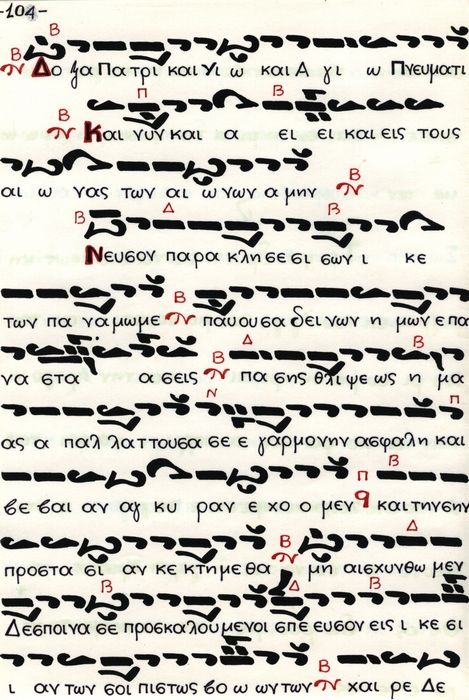 -104-
Δο ξα Πα τρι και Υι ω και Α γι ω Πνευματι
Και νυν και α ει ει και εις τους
αι ω νας των αι ω νων α μην
Νευσον παρα κλησεσι σων ι κε
των πα να μωμε παυουσα δεινων μων επα
να στα α σεις πα σης θλιψε ως η μα
ας α παλ λαττουσα σε ε γαρ μονην ασφαλη και
βε βαι αν αγ κυ ραν ε χο ο μεν και την σην
προστα σι αν κε κτη με θα μη αισχυνθω μεν
Δεσποινα σε προσκαλουμενοι σπε ευσον εις ι κε σι
ι αν των σοι πιστως βο ω ων των χαι ρε Δε